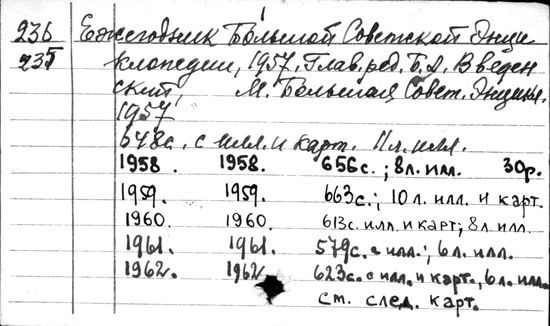 236 Ежегодник Большой Советской Энци
235 клопедии, 1957. Глав. ред. Б. А. Введен
ский, М. Большая Совет. Энцикл.
1957
648с. с илл. и карт. 11 л. илл.
1958. 1958. 656с.; 8 л. илл. 30р.
1959. 1959. 663с.; 10 л. илл. и карт.
1960. 1960. 613с. илл. и карт; 8 л. илл.
1961. 1961. 579с. с илл.; 6 л. илл.
1962. 1962 623с. с илл. и карт., 6 л. илл.
см. след. карт.